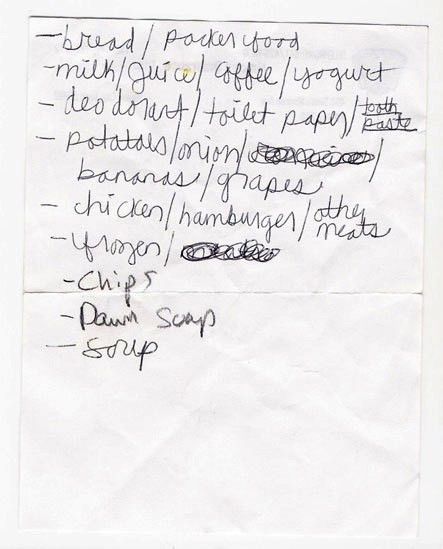 - bread / packer food
- milk / juice / coffee / yogurt
- deodorant / toilet paper / tooth paste
- potatoes / onion / /
bananas / grapes
- chicken / hamburger / other meats
- frozen /
- Chips
- Dawn Soap
- Soup